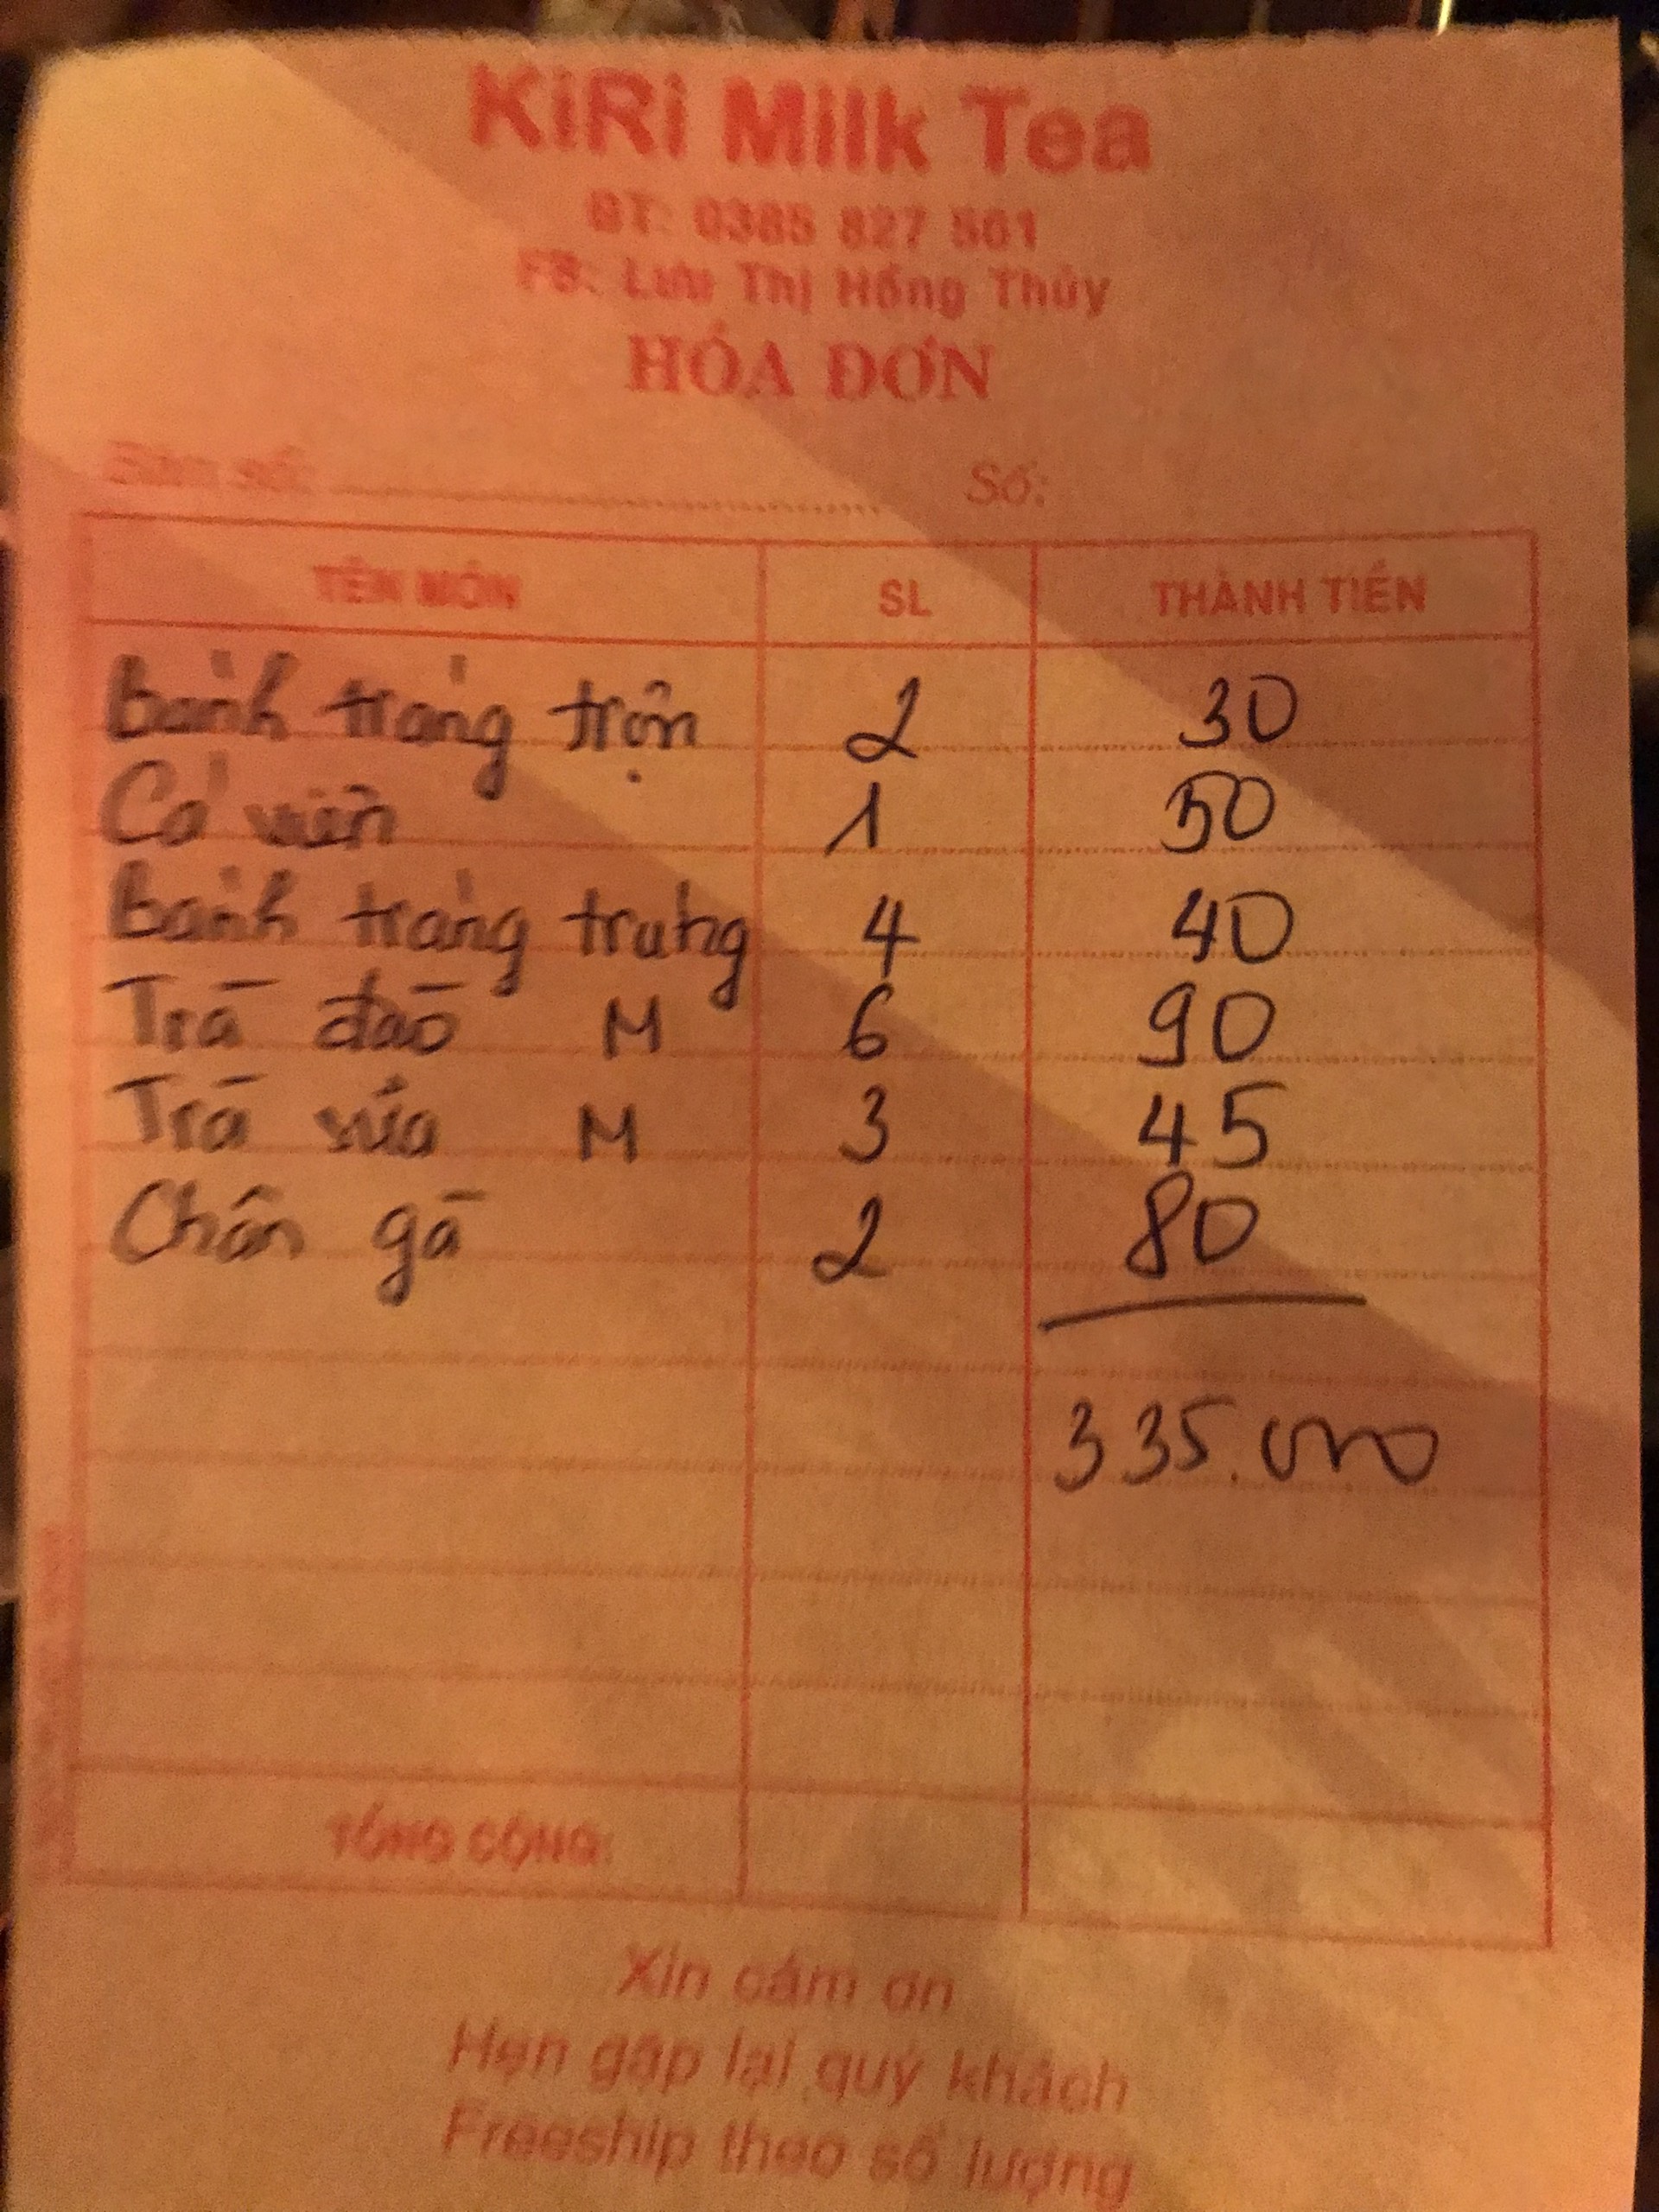 KiRi Milk Tea
ĐT: 0385 827 561
FB: Lưu Thị Hồng Thủy
HÓA ĐƠN
Bàn số: Số:
TÊN MÓN SL THÀNH TIỀN
Bánh tráng trộn 2 30
Cá viên 1 50
Bánh tráng trứng 4 40
Trà đào M 6 90
Trà sữa M 3 45
Chân gà 2 80
335.000
TỔNG CỘNG:
Xin cảm ơn
Hẹn gặp lại quý khách
Freeship theo số lượng